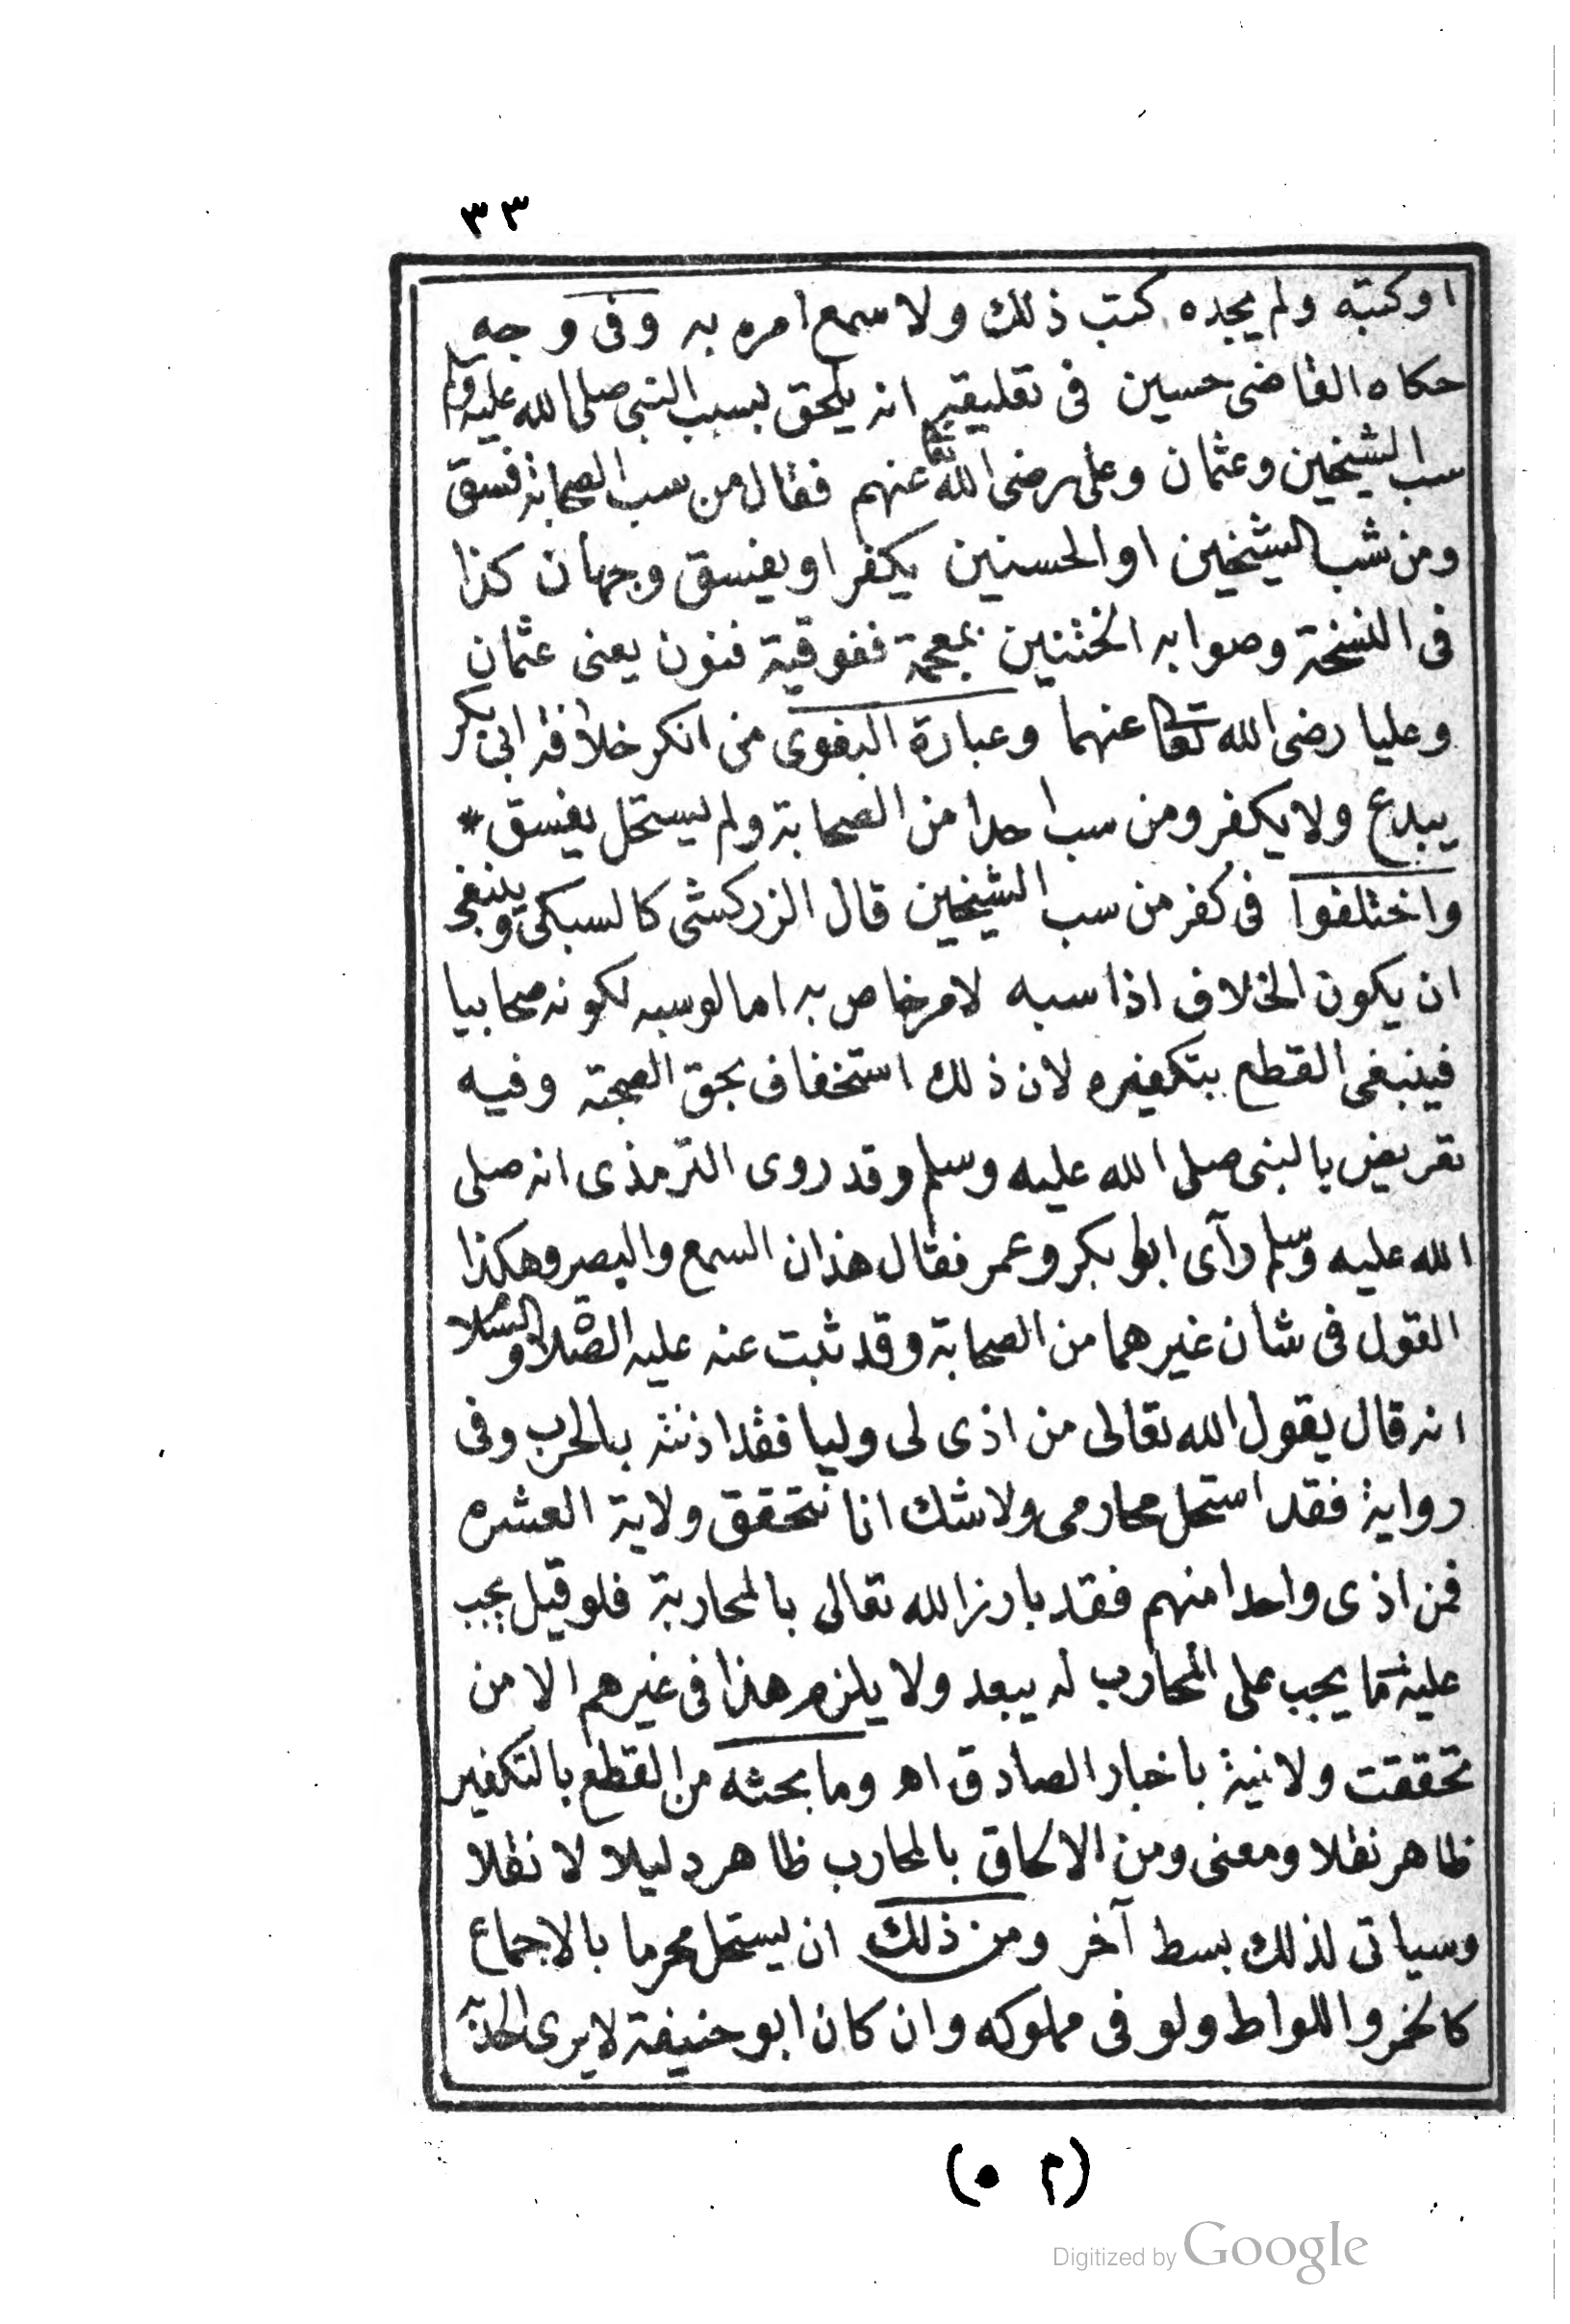 ٣٣
او كتبه ولم يجده كتب ذلك ولا سمع امره به وفى وجه
حكاه القاضى حسين فى تعليقه انه يلحق بسب النبى صلى الله عليه وسلم
سب الشيخين وعثمان وعلى رضى الله تعالى عنهم فقال من سب الصحابة فسق
ومن سب الشيخين او الحسنين يكفر او يفسق وجهان كذا
فى النسخة وصوابه الختنين بمعجمة ففوقية فنون يعنى عثمان
وعليا رضى الله تعالى عنهما وعبارة البغوى من انكر خلافة ابى بكر
يبدع ولا يكفر ومن سب احدا من الصحابة ولم يستحل يفسق *
واختلفوا فى كفر من سب الشيخين قال الزركشى كالسبكى وينبغى
ان يكون الخلاف اذا سبه لامر خاص به اما لو سبه لكونه صحابيا
فينبغى القطع بتكفيره لان ذلك استخفاف بحق الصحبة وفيه
تعريض بالنبى صلى الله عليه وسلم وقد روى الترمذى انه صلى
الله عليه وسلم رآى ابو بكر وعمر فقال هذان السمع والبصر وهكذا
القول فى شان غيرهما من الصحابة وقد ثبت عنه عليه الصلاة والسلام
انه قال يقول الله تعالى من اذى لى وليا فقد اذنته بالحرب وفى
رواية فقد استحل محارمى ولا شك انا نتحقق ولاية العشره
فمن اذى واحدا منهم فقد بارز الله تعالى بالمحاربة فلو قيل يجب
عليه ما يجب على المحارب لم يبعد ولا يلزم هذا فى غيرهم الا من
تحققت ولايته باخبار الصادق اه وما بحثه من القطع بالتكفير
ظاهر نقلا ومعنى ومن الالحاق بالمحارب ظاهر دليلا لا نقلا
وسياتى لذلك بسط آخر ومن ذلك ان يستحل محرما بالاجماع
كالخمر واللواط ولو فى مملوكه وان كان ابو حنيفة لا يرى الحد به
(٥ ٢)
Digitized by Google